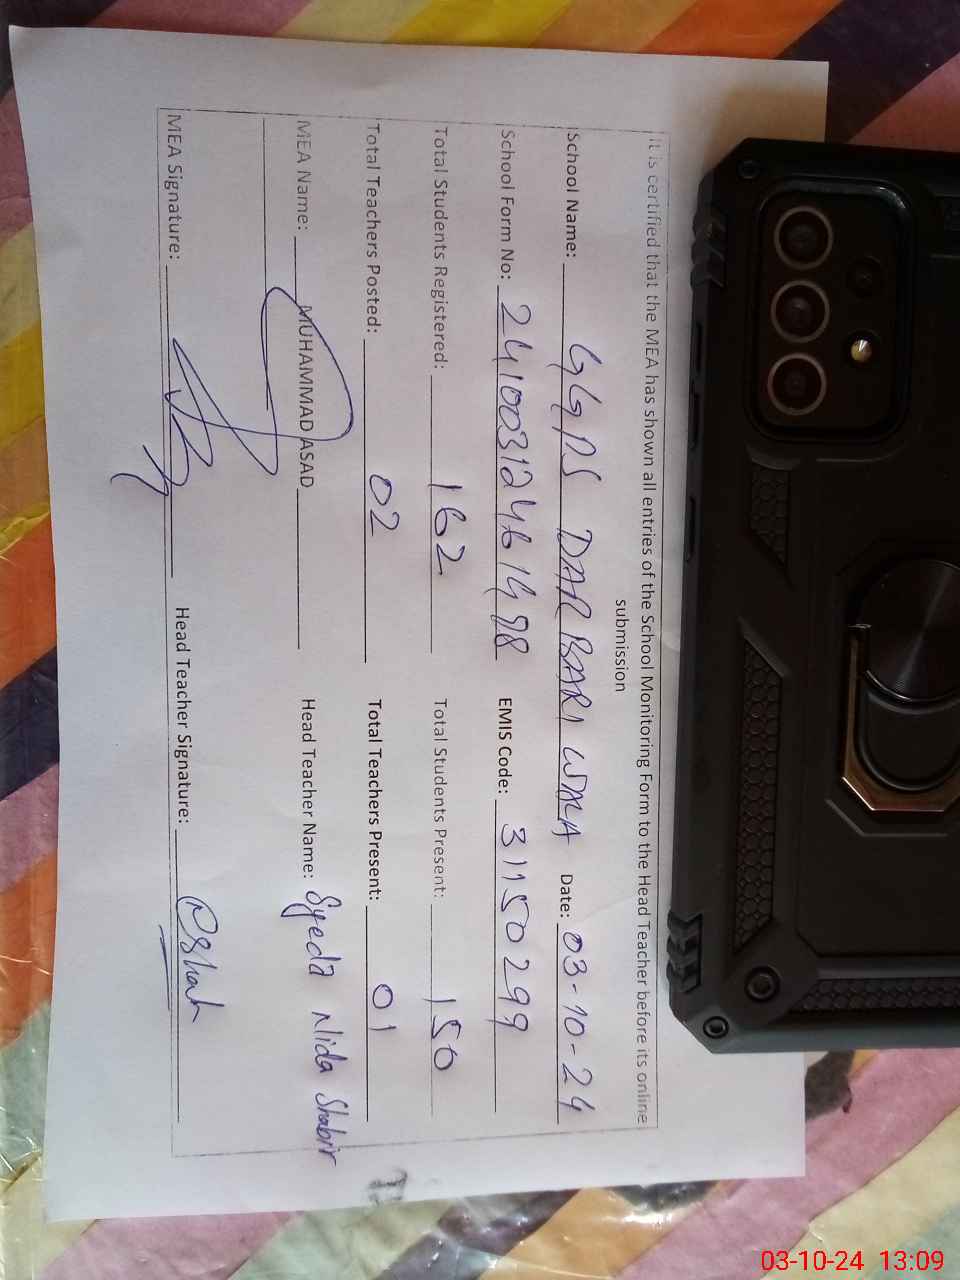 It is certified that the MEA has shown all entries of the School Monitoring Form to the Head Teacher before its online
submission
School Name: GGPS DARBARI WALA Date: 03-10-24
School Form No: 24100312461498 EMIS Code: 31150299
Total Students Registered: 162 Total Students Present: 150
Total Teachers Posted: 02 Total Teachers Present: 01
MEA Name: MUHAMMAD ASAD Head Teacher Name: Syeda Nida Shabir
MEA Signature: Head Teacher Signature:
03-10-24 13:09